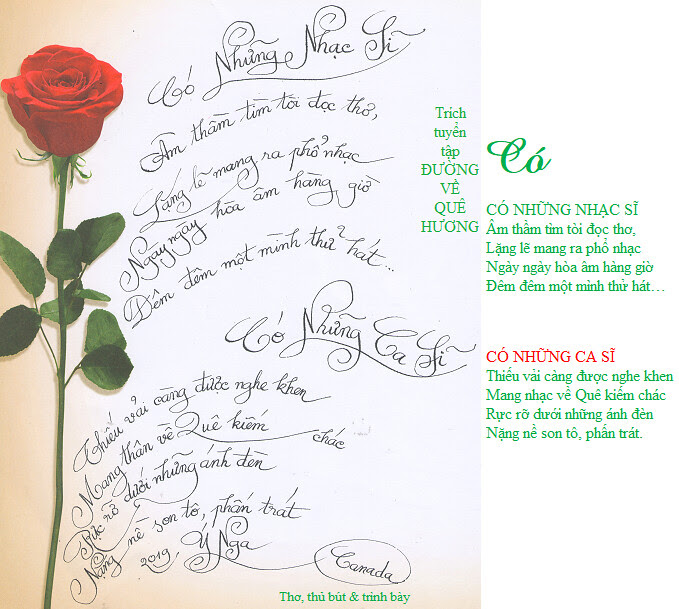 Có Những Nhạc Sĩ
Âm thầm tìm tòi đọc thơ,
Lặng lẽ mang ra phổ nhạc
Ngày ngày hòa âm hàng giờ
Đêm đêm một mình thử hát...
Có Những Ca Sĩ
Thiếu vải càng được nghe khen
Mang thân về Quê kiếm chác
Rực rỡ dưới những ánh đèn
Nặng nề son tô, phấn trát
2019, Ý Nga
Canada
Thơ, thủ bút & trình bày
Trích
tuyển
tập
ĐƯỜNG
VỀ
QUÊ
HƯƠNG
Có
CÓ NHỮNG NHẠC SĨ
Âm thầm tìm tòi đọc thơ,
Lặng lẽ mang ra phổ nhạc
Ngày ngày hòa âm hàng giờ
Đêm đêm một mình thử hát…
CÓ NHỮNG CA SĨ
Thiếu vải càng được nghe khen
Mang nhạc về Quê kiếm chác
Rực rỡ dưới những ánh đèn
Nặng nề son tô, phấn trát.